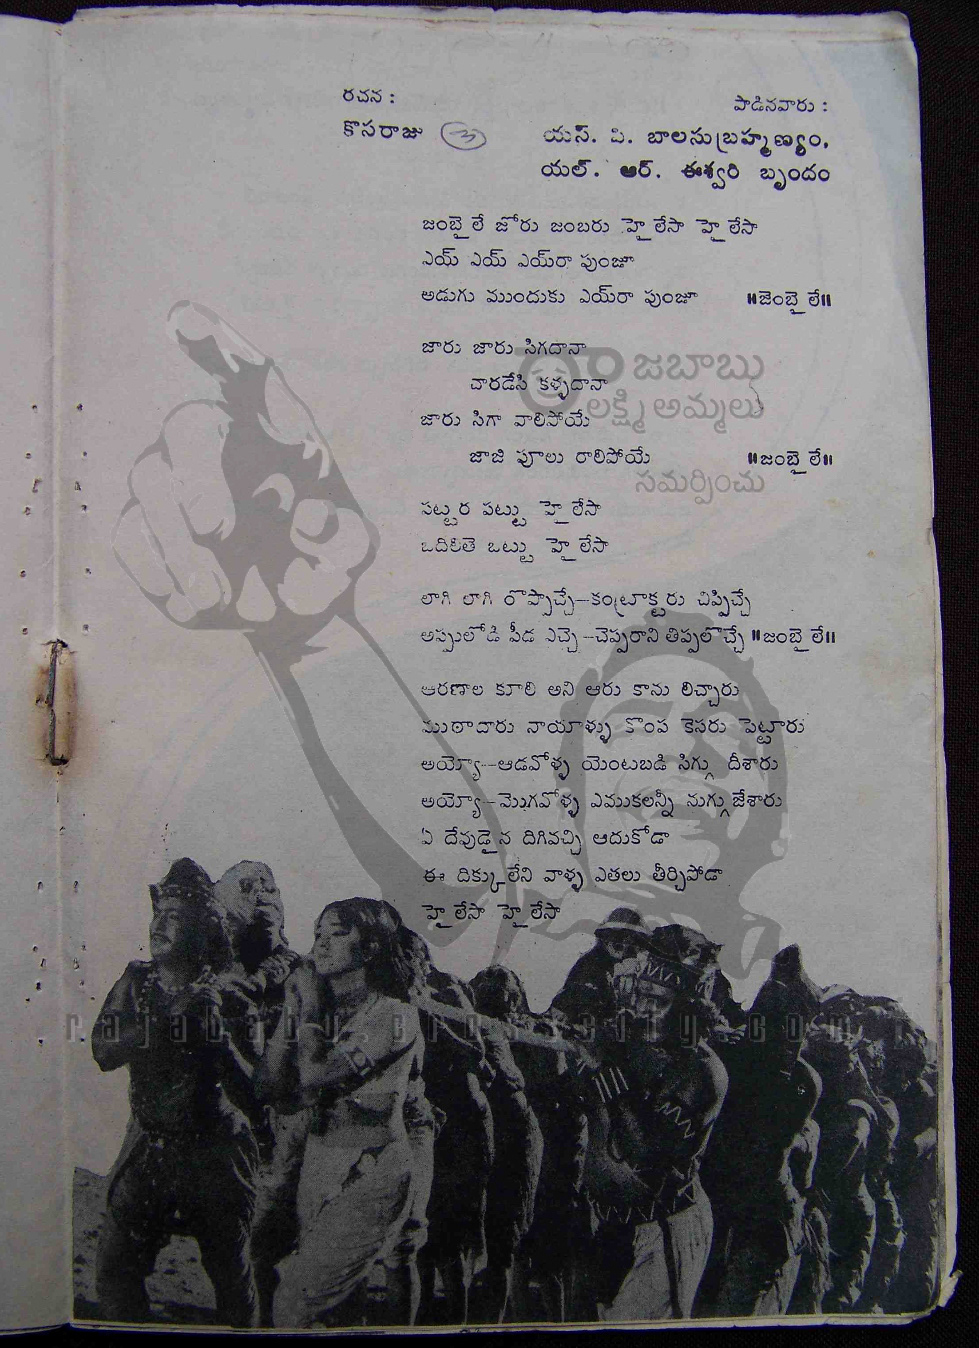 రచన :
కొసరాజు 3
పాడినవారు :
యస్. పి. బాలసుబ్రహ్మణ్యం,
యల్. ఆర్. ఈశ్వరి బృందం
జంబై లే జోరు జంబరు హై లేసా హై లేసా
ఎయ్ ఎయ్ ఎయ్‌రా పుంజూ
అడుగు ముందుకు ఎయ్‌రా పుంజూ ॥జెంబై లే॥
జారు జారు సిగదానా
చారడేసి కళ్ళదానా
జారు సిగా వాలిపోయే
జాజి పూలు రాలిపోయే ॥జంబై లే॥
రాజబాబు
లక్ష్మి అమ్మలు
సమర్పించు
పట్టర పట్టు హై లేసా
ఒదిలితె ఒట్టు హై లేసా
లాగి లాగి రొప్పొచ్చే–కంట్రాక్టరు చిప్పిచ్చే
అప్పులోడి పీడ ఎచ్చె–చెప్పరాని తిప్పలొచ్చే ॥జంబై లే॥
ఆరణాల కూలి అని ఆరు కాను లిచ్చారు
ముఠాదారు నాయాళ్ళు కొంప కెసరు పెట్టారు
అయ్యో–ఆడవోళ్ళ యెంటబడి సిగ్గు దీశారు
అయ్యో–మొగవోళ్ళ ఎముకలన్నీ నుగ్గుజేశారు
ఏ దేవుడై న దిగివచ్చి ఆదుకోడా
ఈ దిక్కులేని వాళ్ళ ఎతలు తీర్చిపోడా
హై లేసా హై లేసా
rajababu.crosscity.com